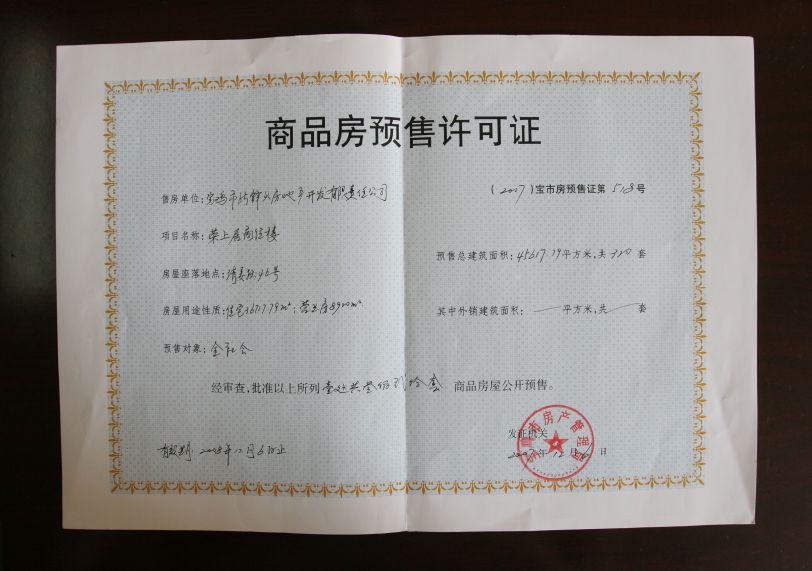 商品房预售许可证
(2007)宝市房预售证第518号
售房单位:宝鸡市 房地产开发有限责任公司
项目名称:荣上居商住楼
预售总建筑面积:45617.79平方米,共320套
房屋座落地点:清姜路46号
房屋用途性质:住宅36717.79m²;营业房8900m²
其中外销建筑面积:——平方米,共——套
预售对象:全社会
经审查,批准以上所列 商品房屋公开预售。
发证机关
有效期:2008年12月6日止
2007年12月 日
市房产管理局